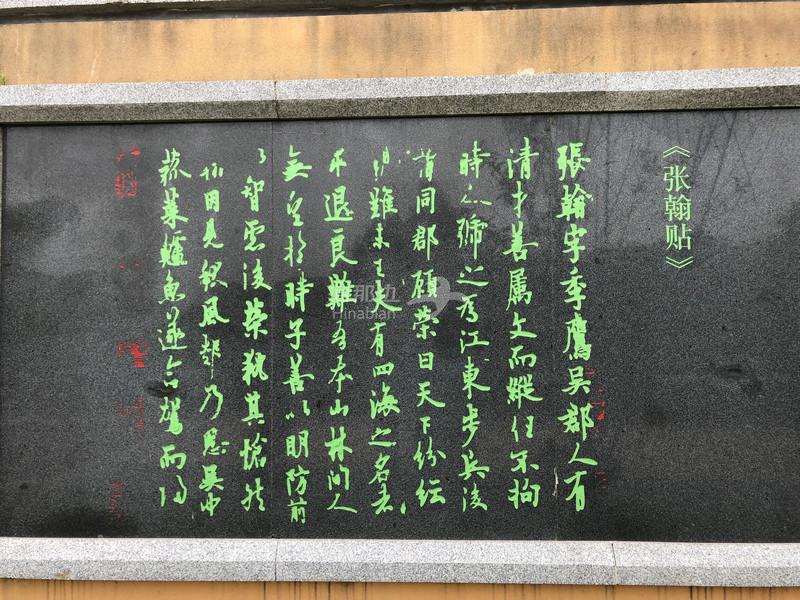 《张翰贴》
張翰字季鷹吴郡人有
清才善属文而縱任不拘
時人號之為江東步兵後
謂同郡顧榮曰天下紛紜
難未已夫有四海之名者
求退良難吾本山林間人
無望於時子善以明防前
以智慮後榮執其愴然
翰因見秋風起乃思吴中
菰菜鱸魚遂命駕而歸
那边
Hinabian